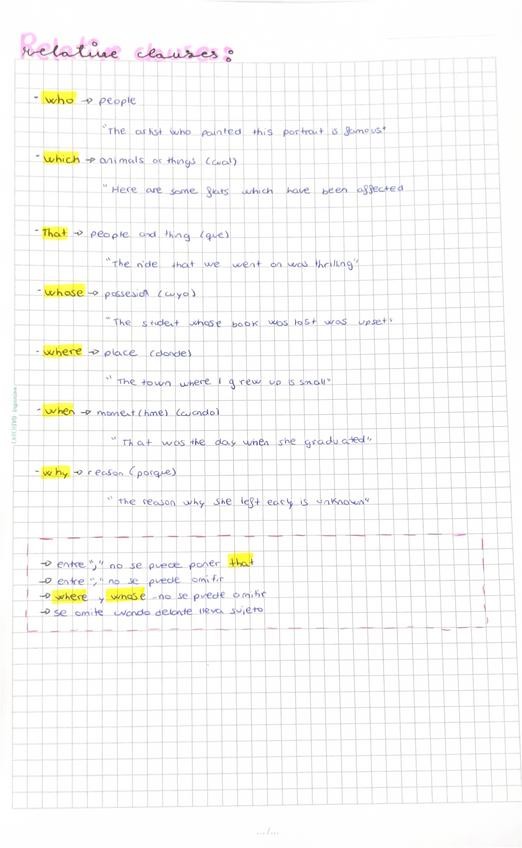 relative clauses:
- who → people
"The artist who painted this portrait is famous"
- which → animals or things (cual)
"Here are some flats which have been affected
- That → people and thing (que)
"The ride that we went on was thrilling"
- whose → possesion (cuyo)
"The student whose book was lost was upset"
- where → place (donde)
"The town where I grew up is small"
- when → moment (time) (cuando)
"That was the day when she graduated"
- why → reason (porque)
"the reason why she left early is unknown"
→ entre "," no se puede poner that
→ entre "," no se puede omitir
→ where y whose no se puede omitir
→ se omite cuando delante lleva sujeto
.../...